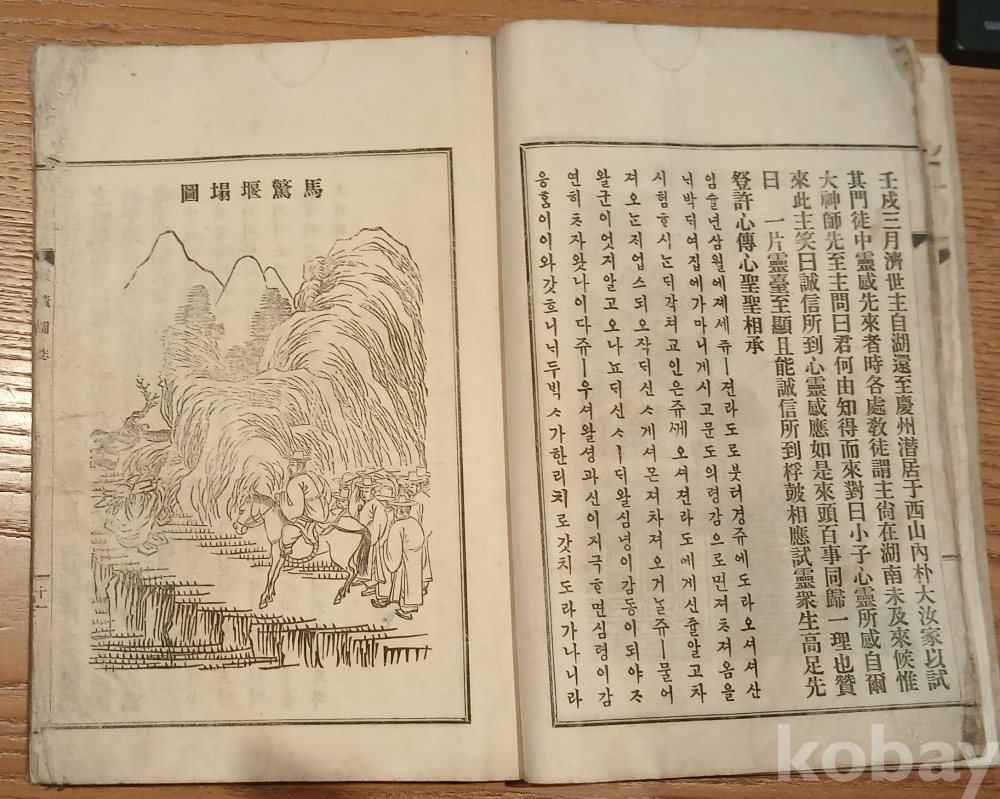 壬戌三月濟世主自湖還至慶州潛居于西山內朴大汝家以試
其門徒中靈感先來者時各處敎徒謂主尙在湖南未及來候惟
大神師先至主問曰君何由知得而來對曰小子心靈所感自爾
來此主笑曰誠信所到心靈感應如是來頭百事同歸一理也贊
曰 一片靈臺至顯且能誠信所到桴鼓相應試靈衆生高足先
登許心傳心聖聖相承
임슐년삼월에졔세쥬ㅣ젼라도로붓터경쥬에도라오셔셔산
ᄂᆡ박ᄃᆡ여집에가마니게시고문도의령감으로먼져ᄎᆞ져옴을
시험ᄒᆞ시ᄂᆞᄃᆡ각쳐교인은쥬ᄭᅦ오셔젼라도에게신쥴알고차
져오ᄂᆞᆫ지업스되오작ᄃᆡ신ᄉᆞ게셔몬져차져오거ᄂᆞᆯ쥬ㅣ물어
왈군이엇지알고오나뇨ᄃᆡ신ᄉᆞㅣᄃᆡ왈심녕이감동이되야ᄌᆞ
연히ᄎᆞ자왓나이다쥬ㅣ우셔왈셩과신이지극ᄒᆞ면심령이감
응홈이이와갓흐니ᄂᆡ두ᄇᆡᆨᄉᆞ가한리치로갓치도라가나니라
馬驚堰塌圖
靈蹟圖誌
十一
kobay